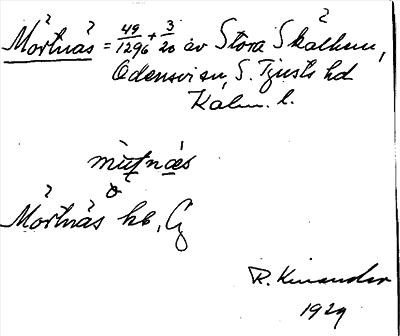 Mörtnäs = 49/1296 + 3/20 av Stora Skälhem,
Odensvi sn, S. Tjusts hd
Kalm. l.
mùtnäs
Mörtnäs hb, G
R. Kinander
1929